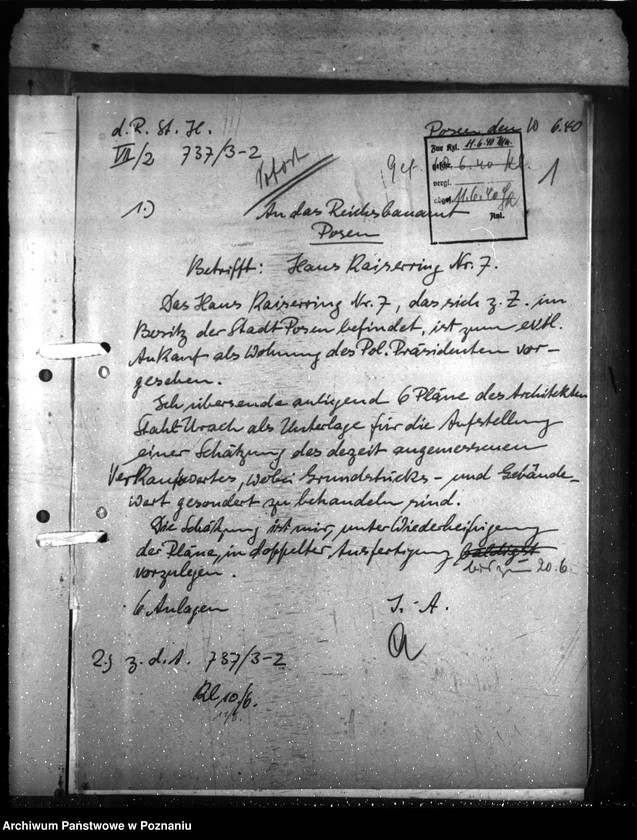 d. R. St. H.
VII/2 737/3-2
Posen den 10 6.40
Sofort
Zur Kzl. 11.6.40
gef. 6.40
vergl.
abges. 11.6.40
Anl.
1
1.)
An das Reichsbauamt
Posen
Betrifft: Haus Kaiserring Nr. 7.
Das Haus Kaiserring Nr. 7, das sich z. Z. im
Besitz der Stadt Posen befindet, ist zum evtl.
Ankauf als Wohnung des Pol. Präsidenten vor-
gesehen.
Ich übersende anliegend 6 Pläne des Architekten
Stahl-Urach als Unterlage für die Aufstellung
einer Schätzung des dezeit angemessenen
Verkaufswertes, wobei Grundstücks- und Gebäude-
wert gesondert zu behandeln sind.
Die Schätzung ist mir, unter Wiederbeifügung
der Pläne, in doppelter Ausfertigung baldigst
bis zum 20.6.
vorzulegen.
6 Anlagen
I. A.
2.) z. d. A. 737/3-2
10/6.
Archiwum Państwowe w Poznaniu